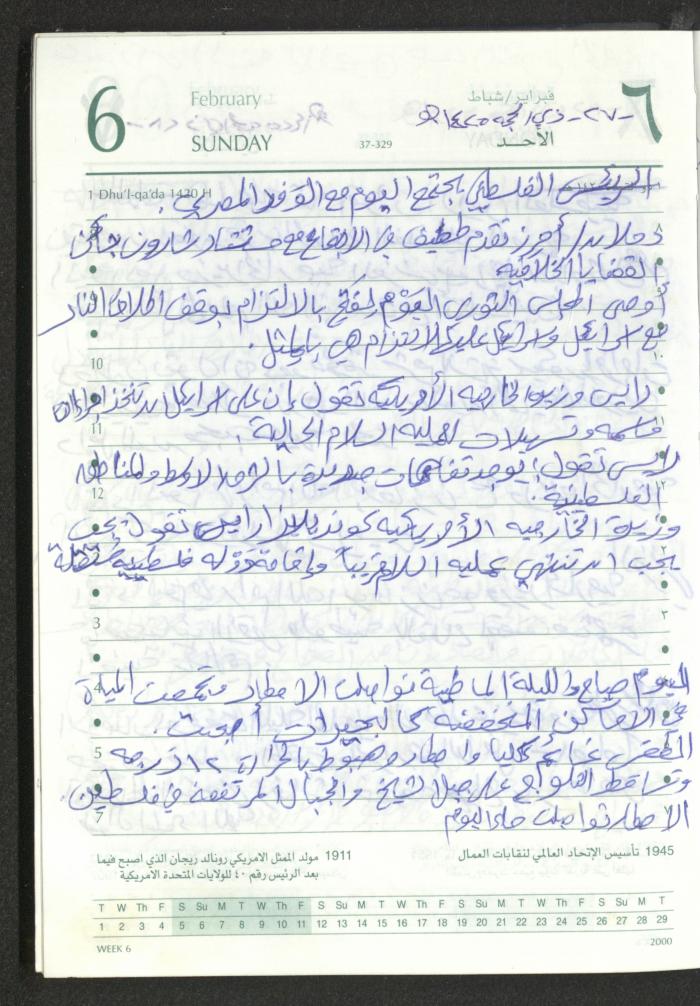 6
February
SUNDAY
37-329
فبراير/شباط
٦
-٢٧- ذي الحجة ١٤٢٥هـ
الأحـد
1 Dhu'l-qa'da 1420 H
الرئيس الفلسطيني يجتمع اليوم مع الوفد المصري.
دحلان / أحرز تقدم طفيف في الاجتماع مع مستشار شارون بشأن
القضايا الخلافية
أوصى المجلس الثوري لفتح بالالتزام بوقف اطلاق النار
مع اسرائيل واسرائيل عليها الالتزام هي بالمثل.
رايس وزيرة الخارجيه الأمريكيه تقول إن على اسرائيل ان تتخذ اجراءات
حاسمه وتسهيلات لعملية السلام الحالية.
رايس تقول: يوجد تفاهمات جديدة بالشرق الاوسط والمناطق
الفلسطينية.
وزيرة الخارجيه الأمريكيه كونداليزا رايس تقول يجب
يجب ان تنتهي عمليه السلام قريباً وإقامة دوله فلسطينيه مستقلة
اليوم صباح والليلة الماضية تواصلت الامطار وتجمعت المياة
في الاماكن المنخفضه كالبحيرات أصبحت.
الطقس غائم كليا وامطار وهبوط بالحرارة ١٢ درجه
وتساقط الثلوج على جبل الشيخ والجبال المرتفعة في فلسطين.
الامطار تواصلت اليوم
10
11
12
3
4
5
7
1945 تأسيس الإتحاد العالمي لنقابات العمال
1911 مولد الممثل الامريكي رونالد ريجان الذي اصبح فيما
بعد الرئيس رقم ٤٠ للولايات المتحدة الامريكية
T W Th F S Su M T W Th F S Su M T W Th F S Su M T W Th F S Su M T
1 2 3 4 5 6 7 8 9 10 11 12 13 14 15 16 17 18 19 20 21 22 23 24 25 26 27 28 29
WEEK 6
2000